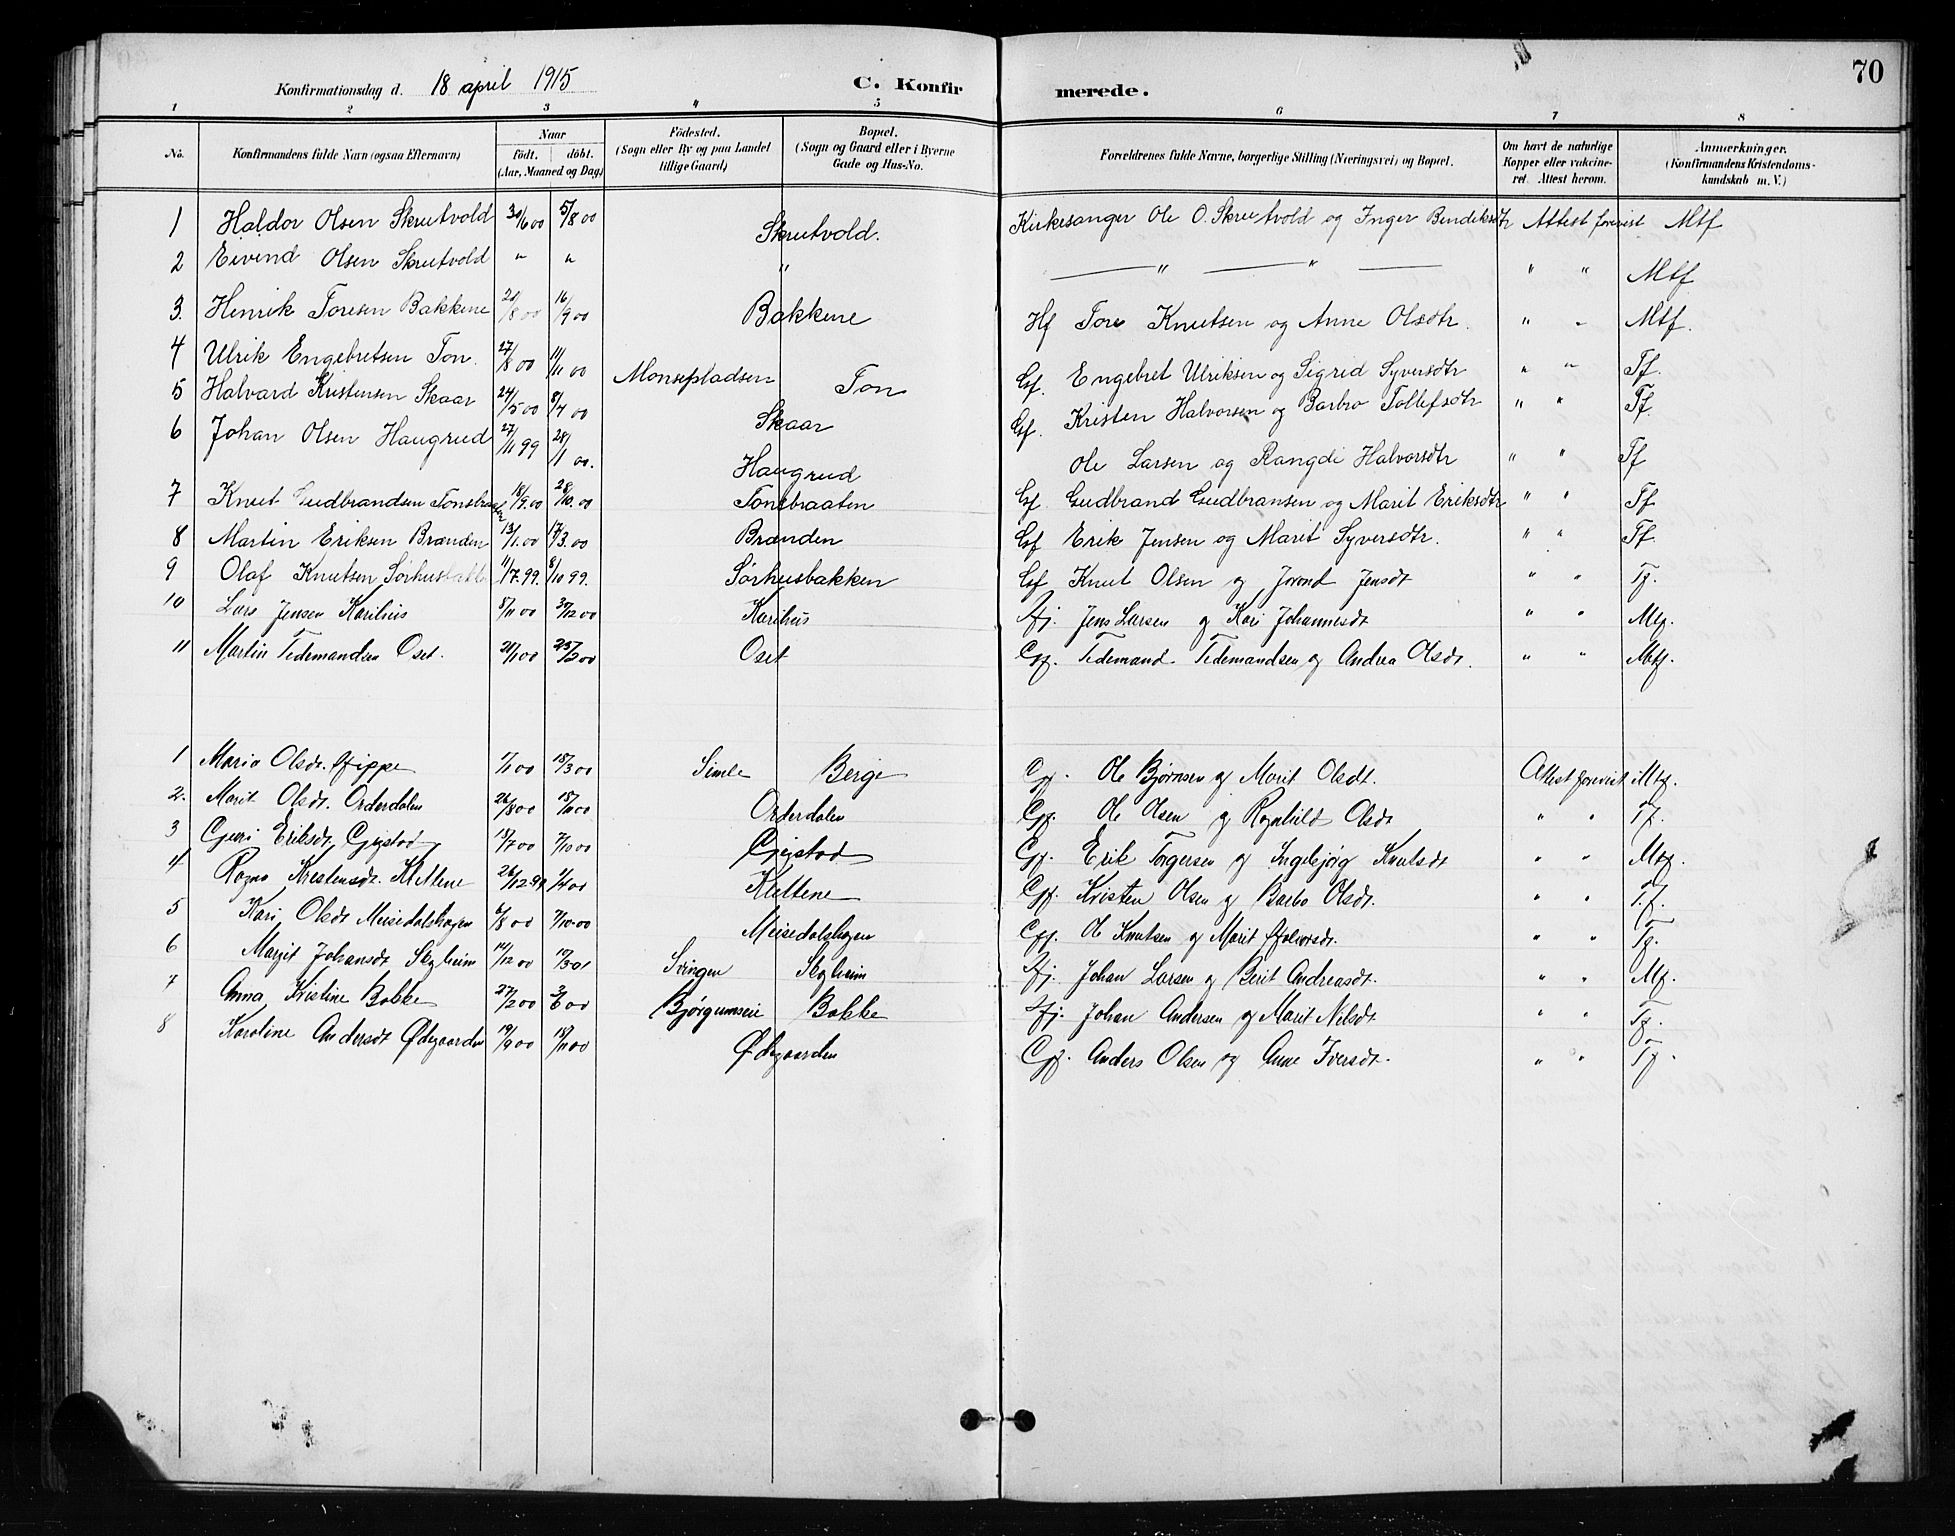 70
Konfirmationsdag d. 18 april 1915 C. Konfirmerede.
1 2 3 4 5 6 7 8
No. Konfirmandens fulde Navn (ogsaa Efternavn) Naar født. døbt. (Aar, Maaned og Dag) Fødested. (Sogn eller By og paa Landet tillige Gaard) Bopæl. (Sogn og Gaard eller i Byerne Gade og Hus-No. Forældrenes fulde Navne, borgerlige Stilling (Næringsvei) og Bopæl. Om havt de naturlige Kopper eller vakcineret. Attest herom. Anmærkninger. (Konfirmandens Kristendomskundskab m. V.)
1 Haldor Olsen Skrutvold 30/6 00 5/8 00 Skrutvold. Kirkesanger Ole O. Skrutvold og Inger Bendiksdtr Attest forevist Mtf
2 Eivind Olsen Skrutvold " " " " " " " Mtf
3. Henrik Toresen Bakkene /8 00 16/9 00 Bakkene Hf Tore Knutsen og Anne Olsdtr. " " Mtf.
4 Ulrik Engebretsen Ton. 27/8 00 11/11 00 Monsepladsen Ton Gsf. Engebret Ulriksen og Sigrid Syversdtr " " Tf.
5 Halvard Kristensen Skaar 24/5 00 8/7 00 Skaar Gsf. Kristen Halvorsen og Barbro Tollefsdtr " " Tf.
6 Johan Olsen Haugrud 27/11 99 28/1 00. Haugrud Ole Larsen og Rangdi Halvorsdtr " " Tf
7 Knut Gudbrandsen Tonsbraaten 18/9.00 28/10.00 Tonsbraaten Gsf Gudbrand Gudbransen og Marit Eriksdtr " " Tf
8 Martin Eriksen Brænden 13/1.00 17/3.00 Brænden Gsf Erik Jensen og Marit Syversdtr. " " Tf.
9 Olaf Knutsen Sørhusbakk 11/7.99. 8/10 99. Sørhusbakken Gsf Knut Olsen og Jorond Jensdt " " Tf.
10 Lars Jensen Karihus 8/11 00 /12 00 Karihus Jens Larsen og Kari Johannesdt " " Mtf.
11 Martin Tidemandsen Oset. /1 00 25/2 00 Oset Gpf. Tidemand Tidemandsen og Andrea Olsdt. " " Mtf.
1 Maria Olsdt. Hippe 1/1 00 18/3 00 Simle Berge Gpf. Ole Bjørnsen og Marit Olsdt. Attest forevist Mtf.
2. Marit Olsdt. Orderdalen 26/8 00 18/11 00 Orderdalen Gpf. Ole Olsen og Ragnhild Olsdt " " Tf.
3 Guri Eriksdt. Gjeistad 13/7 00 7/10 00 Gjeistad Gpf. Erik Torgersen og Ingebjørg Knutsdt " " Mtf.
4 Ragna Kristensdt. Klettene 26/12 99 /4 00 Klettene Gpf. Kristen Olsen og Barbo Olsdt. " " Tf.
5 Kari Olsdt Meisedalshagen 6/8 00 7/10 00 Meisedalshagen Gpf. Ole Knutsen og Marit Halvorsdt. " " Tf.
6 Margit Johansdt Skyheim 14/12 00 10/3 01 Svingen Skyheim Johan Larsen og Berit Andreasdt. " " Mf.
7 Anna Kristine Bakke 27/2 00 3/6 00 Bjørgumseie Bakke Johan Andersen og Marit Nilsdt " " Tf.
8 Karoline Andersdt Ødegaarden 19/9 00 18/11 00 Ødegaarden Gpf. Anders Olsen og Anne Iversdt. " " Tf.